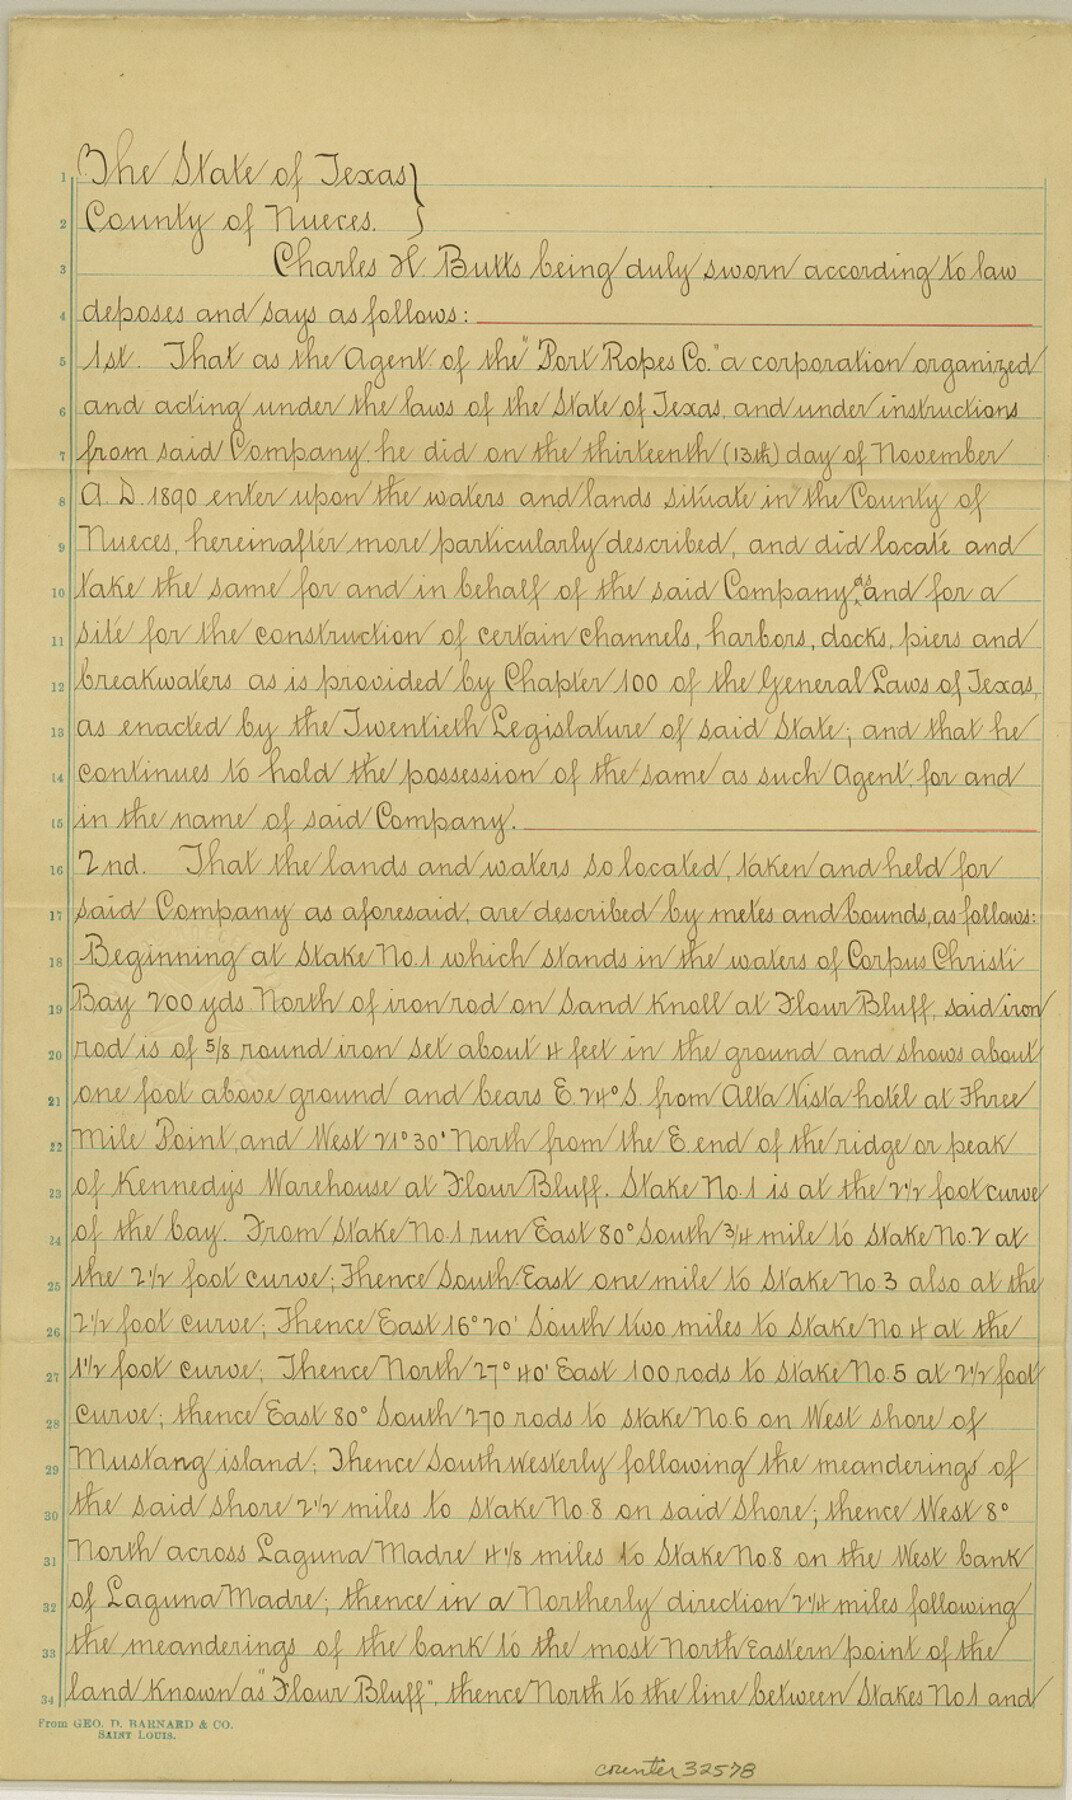 1 The State of Texas }
2 County of Nueces. }
3 Charles H. Butts being duly sworn according to law
4 deposes and says as follows:
5 1st. That as the Agent of the "Port Ropes Co." a corporation organized
6 and acting under the laws of the State of Texas, and under instructions
7 from said Company, he did on the thirteenth (13th) day of November
8 A. D. 1890 enter upon the waters and lands situate in the County of
9 Nueces, hereinafter more particularly described, and did locate and
10 take the same for and in behalf of the said Company, as and for a
11 site for the construction of certain channels, harbors, docks, piers and
12 breakwaters as is provided by Chapter 100 of the General Laws of Texas,
13 as enacted by the Twentieth Legislature of said State; and that he
14 continues to hold the possession of the same as such Agent, for and
15 in the name of said Company.
16 2nd. That the lands and waters so located, taken and held for
17 said Company as aforesaid, are described by metes and bounds, as follows:
18 Beginning at Stake No. 1 which stands in the waters of Corpus Christi
19 Bay 200 yds. North of iron rod on Sand Knoll at Flour Bluff, said iron
20 rod is of 5/8 round iron set about 4 feet in the ground and shows about
21 one foot above ground and bears E. 24° S. from Alta Vista hotel at Three
22 Mile Point, and West 21° 30' North from the E. end of the ridge or peak
23 of Kennedys Warehouse at Flour Bluff. Stake No. 1 is at the 2 1/2 foot curve
24 of the bay. From Stake No. 1 run East 80° South 3/4 mile to Stake No. 2 at
25 the 2 1/2 foot curve; Thence South East one mile to Stake No. 3 also at the
26 2 1/2 foot curve; Thence East 16° 20' South two miles to Stake No. 4 at the
27 1 1/2 foot curve; Thence North 27° 40' East 100 rods to Stake No. 5 at 2 1/2 foot
28 curve; thence East 80° South 270 rods to Stake No. 6 on West shore of
29 Mustang island; Thence Southwesterly following the meanderings of
30 the said shore 2 1/2 miles to Stake No. 8 on said Shore; thence West 8°
31 North across Laguna Madre 4 1/8 miles to Stake No. 8 on the West bank
32 of Laguna Madre; thence in a Northerly direction 2 1/4 miles following
33 the meanderings of the bank to the most North Eastern point of the
34 land known as "Flour Bluff", thence North to the line between Stakes No 1 and
From GEO. D. BARNARD & CO.
SAINT LOUIS.
counter 32578